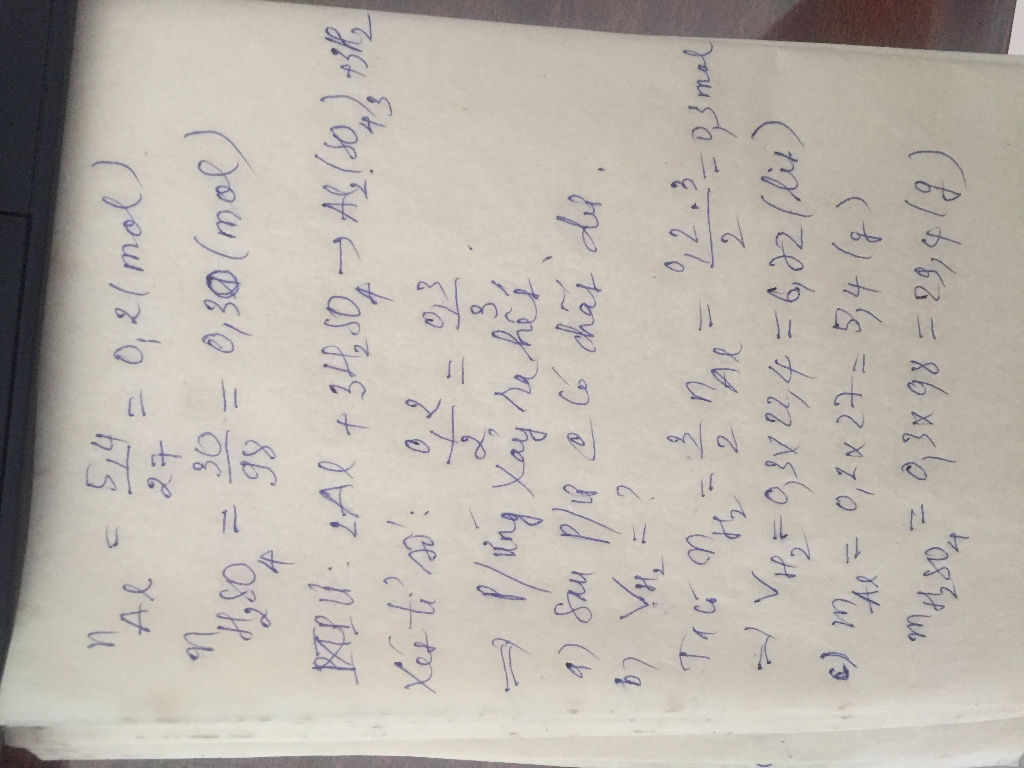 n Al = 5,4/27 = 0,2 (mol)
n H2SO4 = 30/98 = 0,30 (mol)
PTPƯ: 2Al + 3H2SO4 → Al2(SO4)3 + 3H2
Xét tỉ số: 0,2/2 = 0,3/3
=> P/ứng xảy ra hết.
a) Sau P/ứ c có chất dư.
b) VH2 = ?
Ta có nH2 = 3/2 nAl = 0,2.3/2 = 0,3 mol
=> VH2 = 0,3 x 22,4 = 6,72 (lít)
c) mAl = 0,2 x 27 = 5,4 (g)
mH2SO4 = 0,3 x 98 = 29,4 (g)